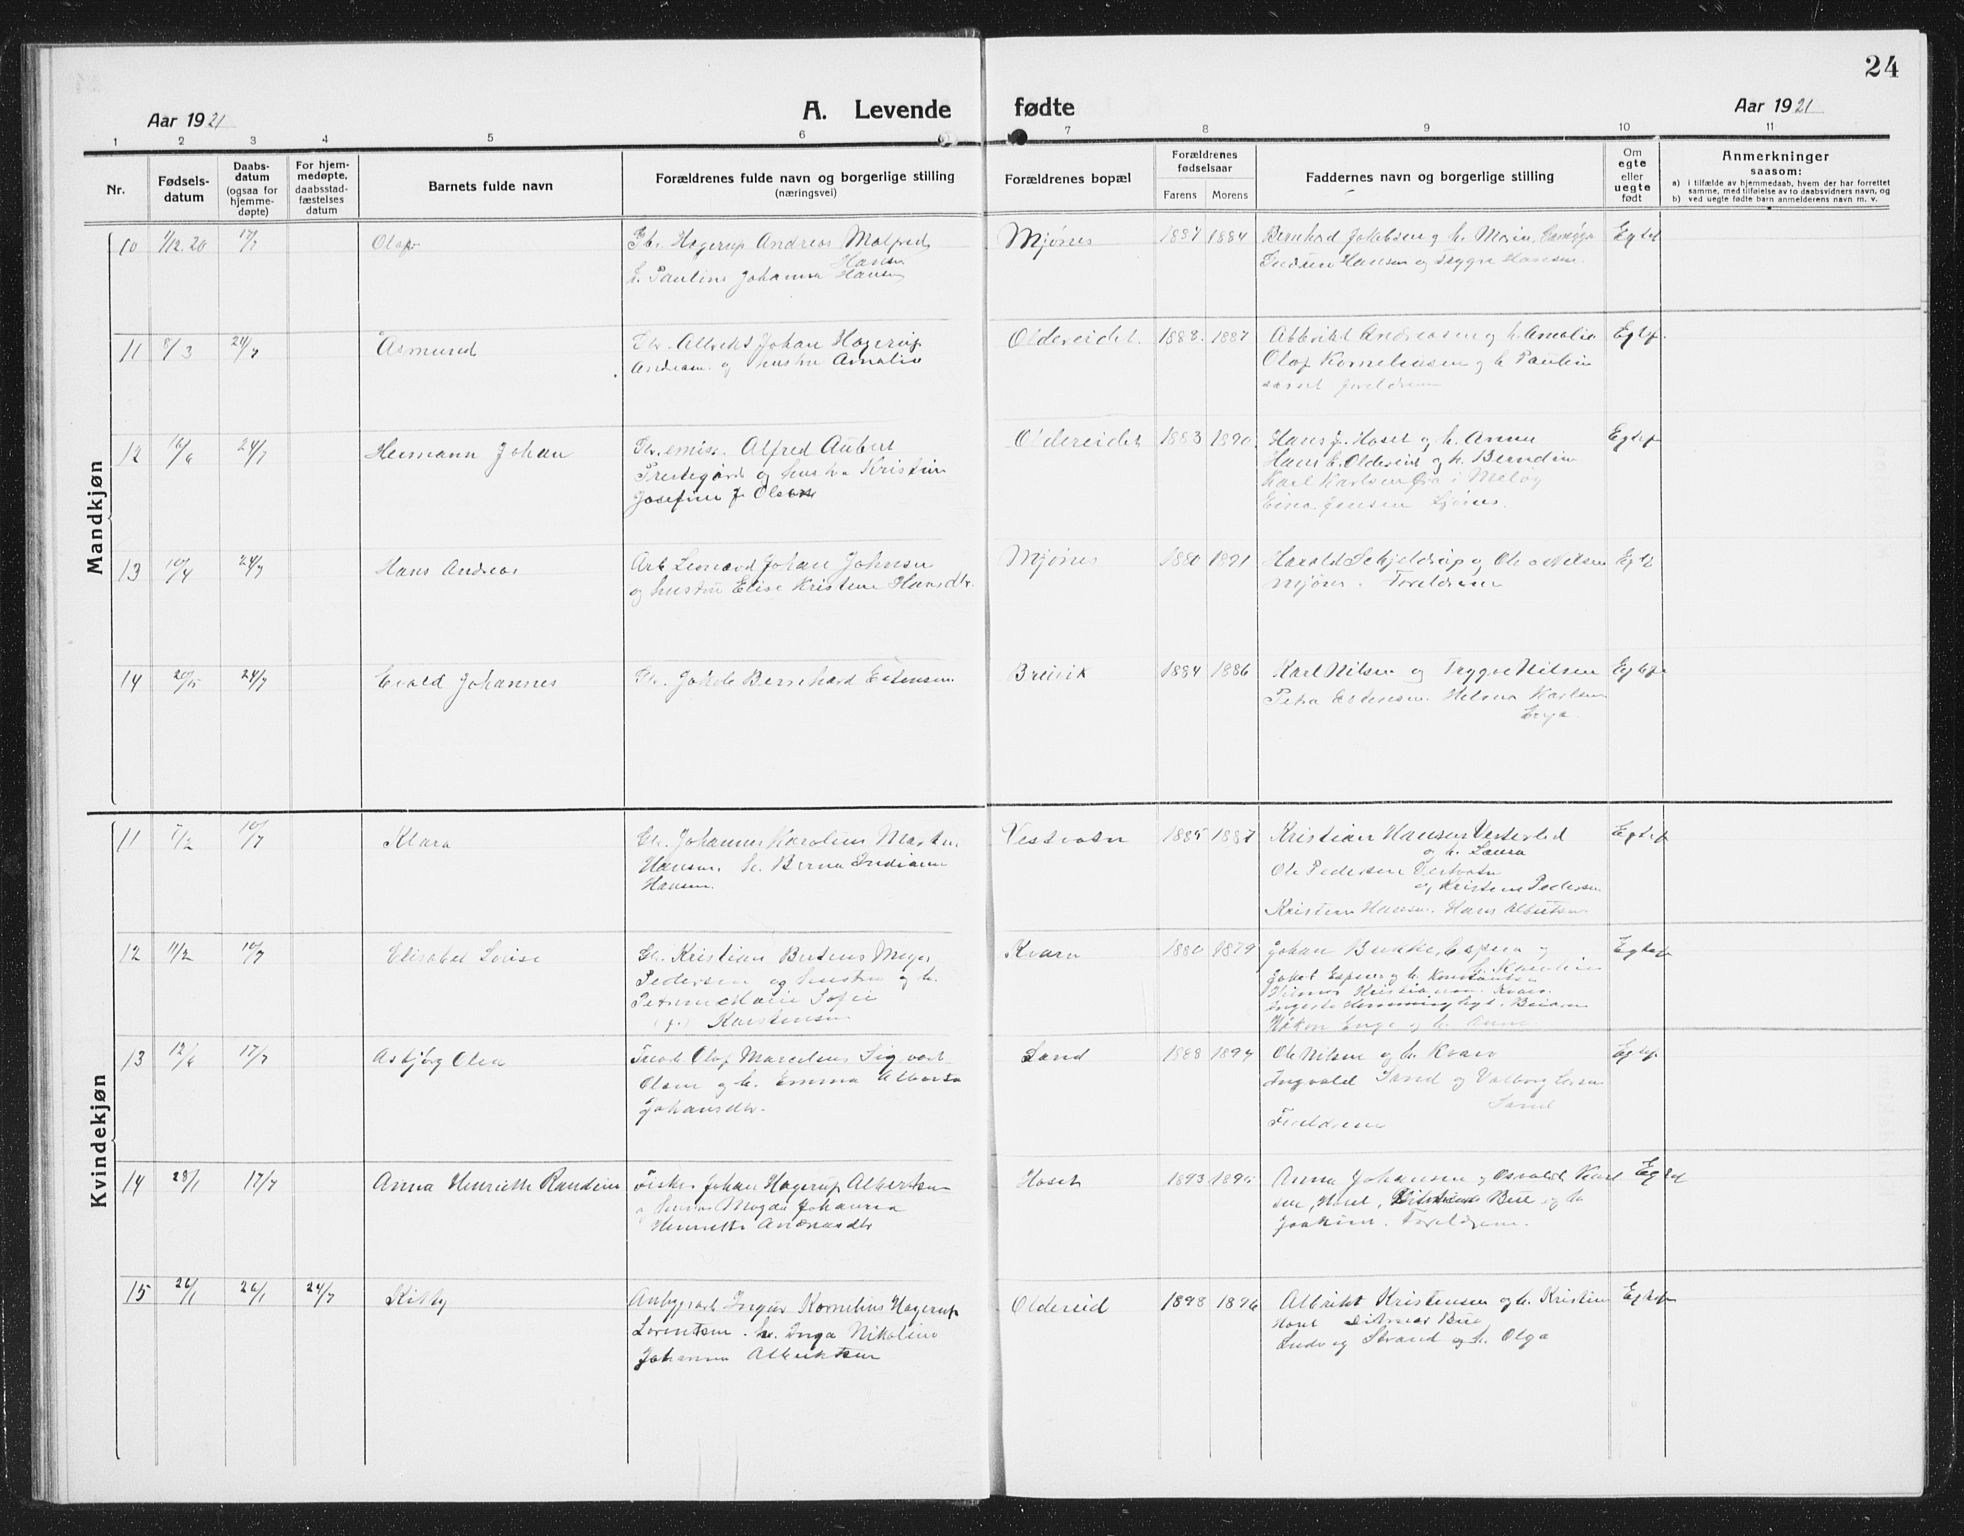 24
Aar 1921
A. Levende fødte
Aar 1921
1 2 3 4 5 6 7 8 9 10 11
Nr.
Fødsels-
datum
Daabs-
datum
(ogsaa for
hjemme-
døpte)
For hjem-
medøpte,
daabsstad-
fæstelses
datum
Barnets fulde navn
Forældrenes fulde navn og borgerlige stilling
(næringsvei)
Forældrenes bopæl
Forældrenes
fødselsaar
Farens Morens
Faddernes navn og borgerlige stilling
Om
egte
eller
uegte
født
Anmerkninger
saasom:
a) i tilfælde av hjemmedaab, hvem der har forrettet
samme, med tilføielse av to daabsvidners navn, og
b) ved uegte fødte barn anmelderens navn m. v.
Mandkjøn
10 1/12.20 17/7 Olaf
Hagerup Andreas Malfred
Hansen
Pauline Johanna Hansen
Mjønes 1887 1884
Bernhard Jakobsen og h.
Hansen og Trygve Hansen.
Egtef
11 8/3 24/7 Asmund
Albrikt Johan Hagerup
Andreasen og hustru Amalie
Oldereidet. 1888. 1887
Albrikt Andreasen og h. Amalie
Olaf Korneliussen og h. Paulin
samt foreldrene
Egtef.
12 16/6 24/7 Hermann Johan
emiss. Alfred Aubert
Prestegård og hustru Kristine
Josefine J. Olsen
Oldereidet 1883 1890
Hans J. Hoset og h. Anna
Hans E. Oldereid og h. Berndin
Karl Karlsen i Meløy
Jensen
Egtef
13 10/4 24/7 Hans Andreas
Arb. Leonard Johan Johnsen
og hustru Elise Kristine Hansdtr.
Mjønes 1880 1891
Harald Schjeldrup og Ole Nilsen
Mjønes. Foreldrene
Egtf
14 20/5 24/7 Evald Johannes
Jakob Bernhard Estensen
Breivik 1884 1886
Karl Nilsen og Trygve Nilsen
Petra Estensen. Helena Karlsen
Egtef
Kvindekjøn
11 1/2 10/7 Klara
Johannes Karolius Martin
Hansen. h. Berna Indianna
Hansen.
Vestvatn 1885 1887
Kristian Hansen Vesterli
og h. Laura
Ole Pedersen Vestvatn
og Kristine Pedersen
Kristian Hansen. Hans Albertsen
Egtef
12 11/2 10/7 Elisabet Lovise
Kristian Meyer
Pedersen og hustru og h.
Petrine Marie Sofie
Karstensen
Kvarv 1880 1879
Johan Espenes og
Jakob Espenes og h. Konstantse
Kristiansen Kvarv
Beiarn
Håkon Enge og h. Anna
Egtef
13 12/6 17/7 Asbjørg Olea
Olaf Marcelius Sigvart
Olsen og h. Emma Alberta
Johansdtr.
Sand 1888 1894
Ole Nilsen og h. Kvarv
Ingvald Sand og Valborg
Sand
Foreldrene
Egtef
14 28/1 17/7 Anna Henriette Randine
Johan Hagerup Albertsen
og hustru Magda Johanna
Henriette Andreasdtr
Hoset 1893 1895
Anna Johansen og Osvald Karl
sen, Hoset, Bue og h.
Joakim. Foreldrene.
Egtef
15 26/1 26/1 24/7 Kitty
Ingvar Kornelius Hagerup
Lorentsen. h. Inga Nikoline
Johanna Albriktsen
Oldereid 1898 1896
Albrikt Kristensen og h. Kristine
Hoset Ditmar Bue
Ludvig Strand og h. Olga
Egtef